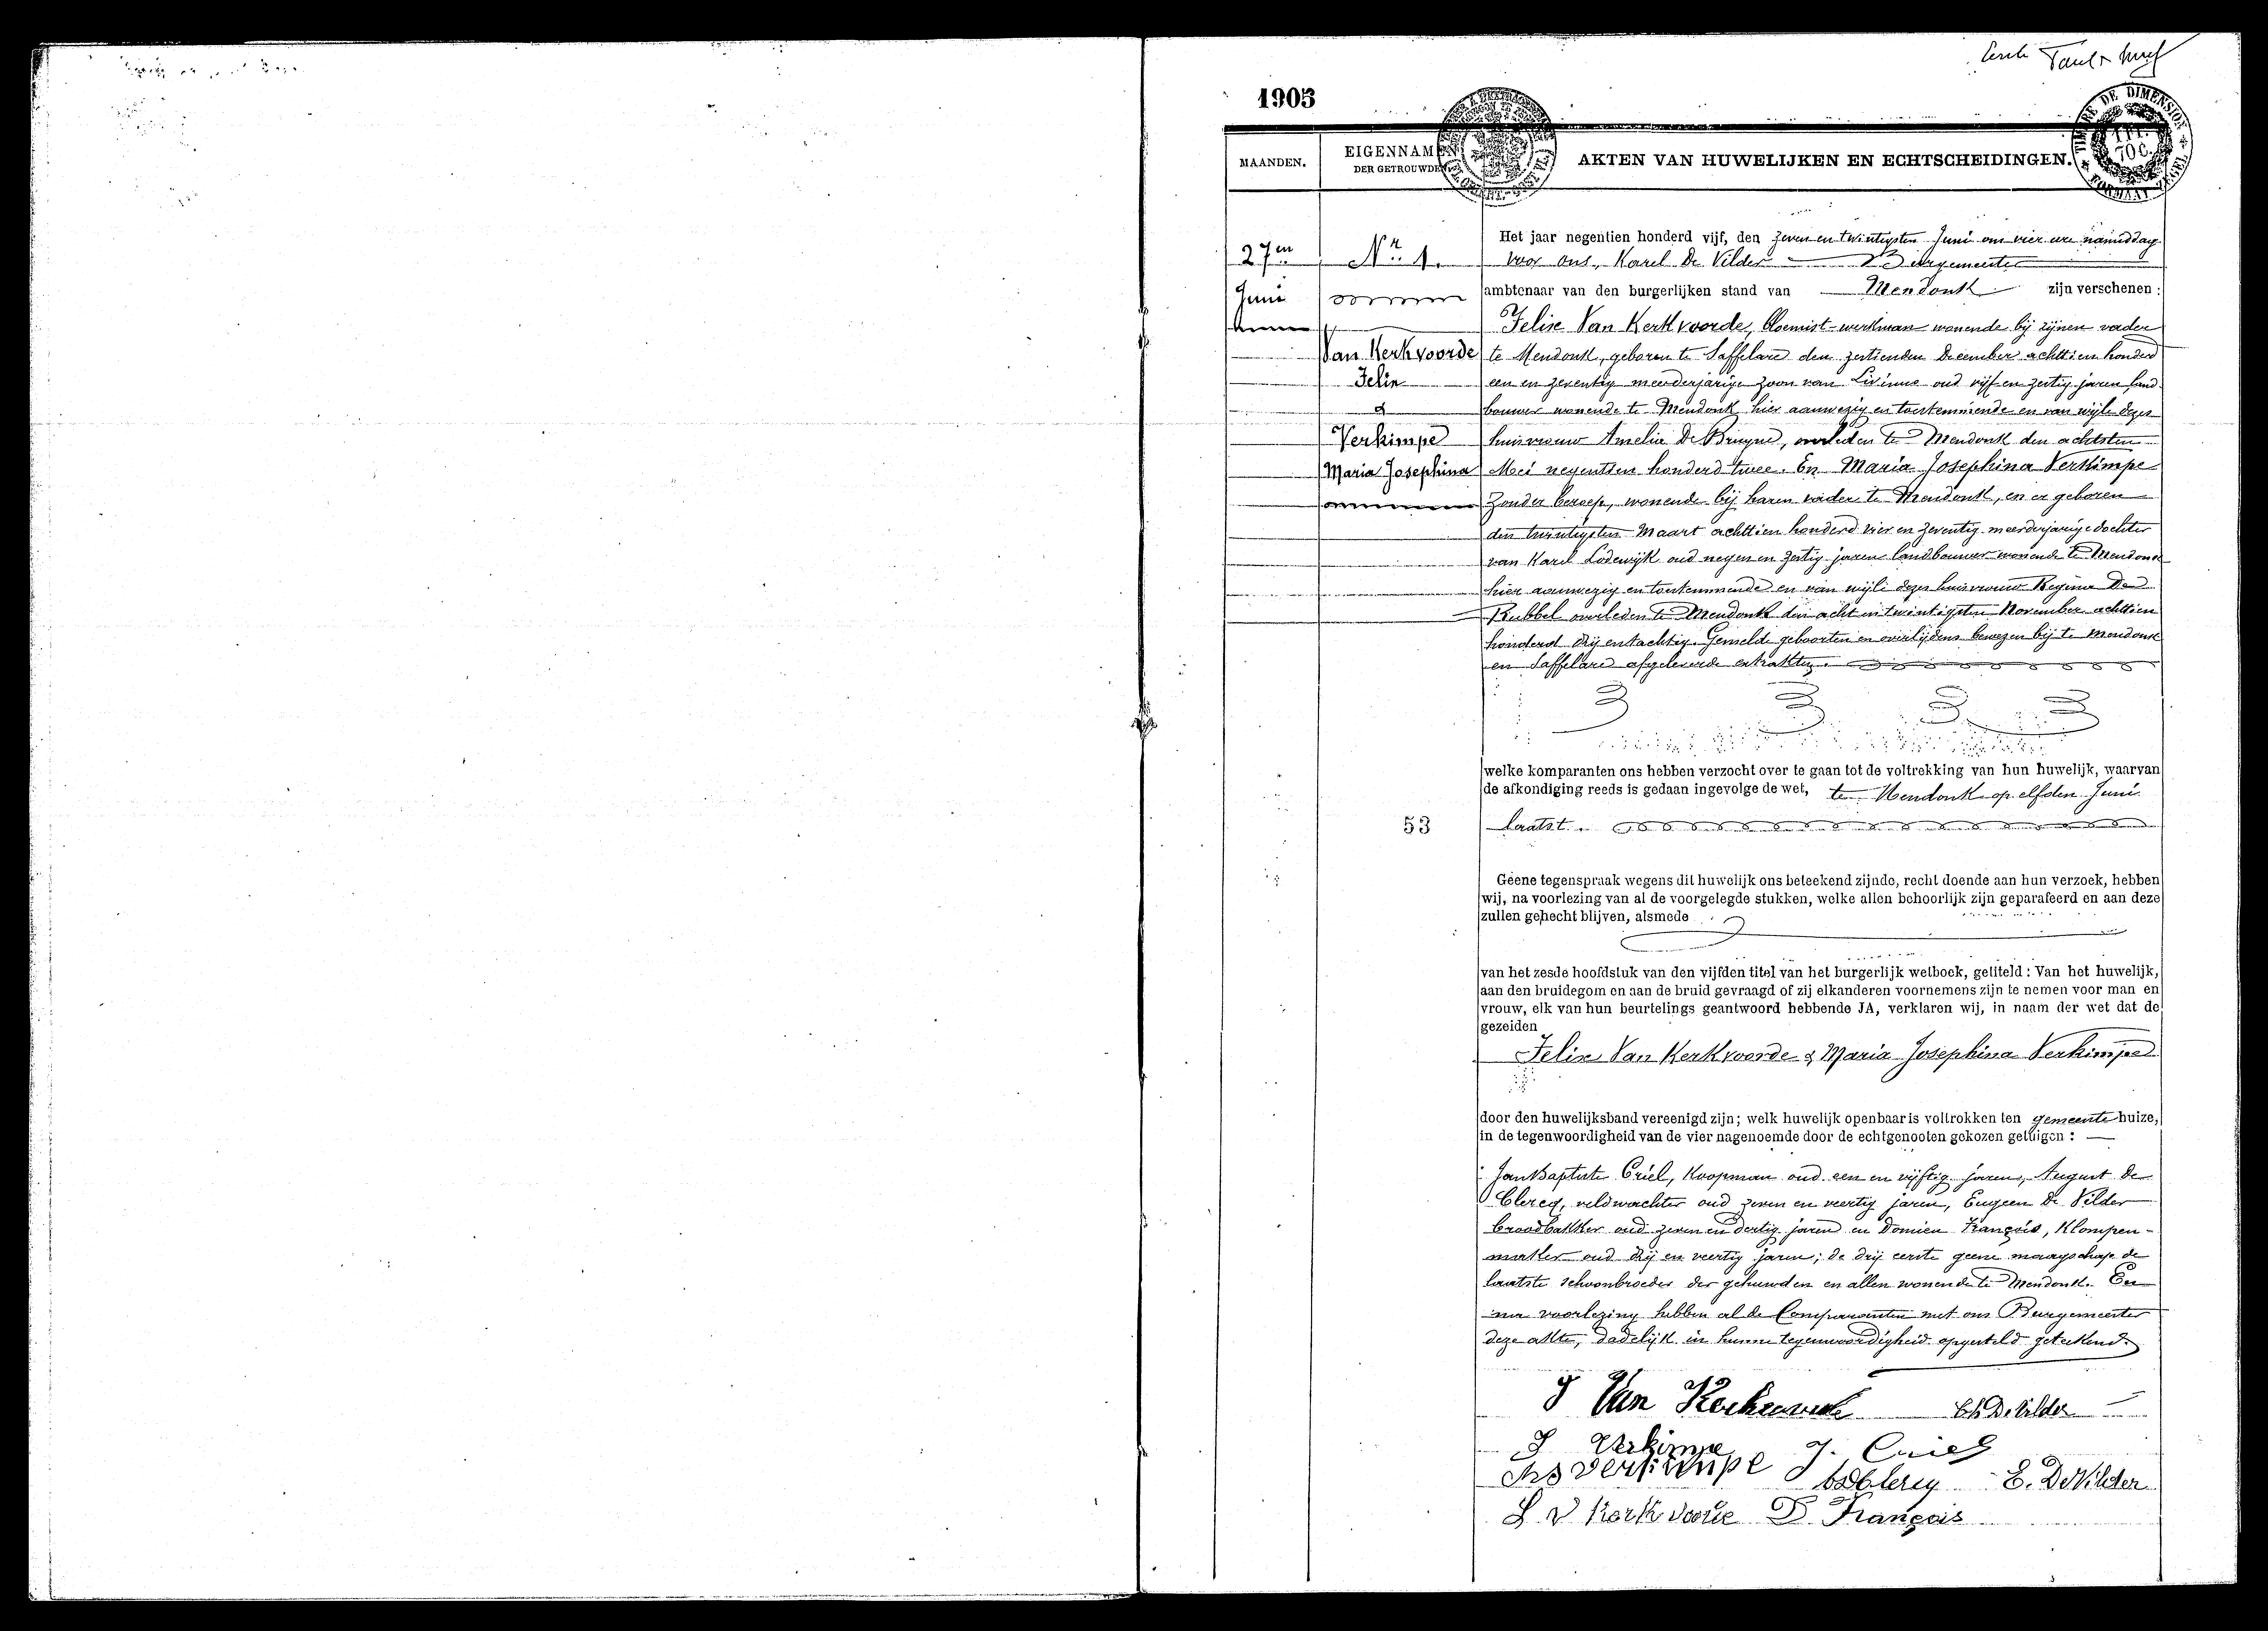 1905
MAANDEN.
EIGENNAMEN
DER GETROUWDEN
AKTEN VAN HUWELIJKEN EN ECHTSCHEIDINGEN.
TIMBRE DE DIMENSION
27en
Juni
Nr 1.
Van Kerkvoorde
Felix
&
Verkimpe
Maria Josephina
Het jaar negentien honderd vijf, den zeven en twintigsten Juni om vier ure namiddag
voor ons, Karel De Vilder Burgemeester
ambtenaar van den burgerlijken stand van Mendonk zijn verschenen:
Felix Van Kerkvoorde, bloemist-werkman wonende bij zijnen vader
te Mendonk, geboren te Saffelare den zestienden December achttien honderd
een en zeventig meerderjarige zoon van Livinus oud vijf en zestig jaren land-
bouwer wonende te Mendonk hier aanwezig en toestemmende en van wijle dezes
huisvrouw Amelia De Bruyne, overleden te Mendonk den achtsten
Mei negentien honderd twee. En Maria Josephina Verkimpe
zonder beroep, wonende bij haren vader te Mendonk, en er geboren
den twintigsten Maart achttien honderd vier en zeventig meerderjarige dochter
van Karel Lodewijk oud negen en zestig jaren landbouwer wonende te Mendonk
hier aanwezig en toestemmende en van wijle dezes huisvrouw Regina De
Rubbel overleden te Mendonk den acht en twintigsten November achttien
honderd drij en tachtig. Gemelde geboorten en overlijdens bewezen bij te Mendonk
en Saffelare afgeleverde extrakten.
welke komparanten ons hebben verzocht over te gaan tot de voltrekking van hun huwelijk, waarvan
de afkondiging reeds is gedaan ingevolge de wet, te Mendonk op elfden Juni
53
laatst.
Geene tegenspraak wegens dit huwelijk ons beteekend zijnde, recht doende aan hun verzoek, hebben
wij, na voorlezing van al de voorgelegde stukken, welke allen behoorlijk zijn geparafeerd en aan deze
zullen gehecht blijven, alsmede
van het zesde hoofdstuk van den vijfden titel van het burgerlijk wetboek, getiteld: Van het huwelijk,
aan den bruidegom en aan de bruid gevraagd of zij elkanderen voornemens zijn te nemen voor man en
vrouw, elk van hun beurtelings geantwoord hebbende JA, verklaren wij, in naam der wet dat de
gezeiden
Felix Van Kerkvoorde & Maria Josephina Verkimpe
door den huwelijksband vereenigd zijn; welk huwelijk openbaar is voltrokken ten gemeente huize,
in de tegenwoordigheid van de vier nagenoemde door de echtgenooten gekozen getuigen:
Jan Baptiste Criel, Koopman oud een en vijftig jaren, August De
Clercq, veldwachter oud zeven en veertig jaren, Eugeen De Vilder
broodbakker oud zeven en dertig jaren en Domien François, Klompen-
maker oud drij en veertig jaren; de drij eerste geene maagschap de
laatste schoonbroeder der gehuwden en allen wonende te Mendonk. En
na voorlezing hebben al de Comparanten met ons Burgemeester
deze akte, dadelijk in hunne tegenwoordigheid opgesteld geteekend.
F Van Kerkvoorde Ch De Vilder
J Verkimpe J. Criel
Chs Verkimpe A De Clercq E. De Vilder
L V Kerkvoorde D. François